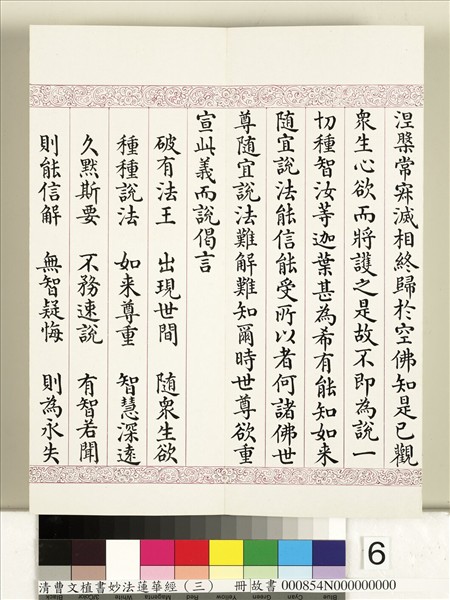 涅槃常寂滅相終歸於空佛知是已觀
衆生心欲而將護之是故不即為說一
切種智汝等迦葉甚為希有能知如来
随宜說法能信能受所以者何諸佛世
尊随宜說法難解難知爾時世尊欲重
宣此義而說偈言
破有法王 出現世間 随衆生欲
種種說法 如来尊重 智慧深逺
久黙斯要 不務速說 有智若聞
則能信解 無智疑悔 則為永失
6
清曹文植書妙法蓮華經(三) 冊 故書 000854N000000000
Blue Cyan Green Yellow Red Magenta White 3/Color Black